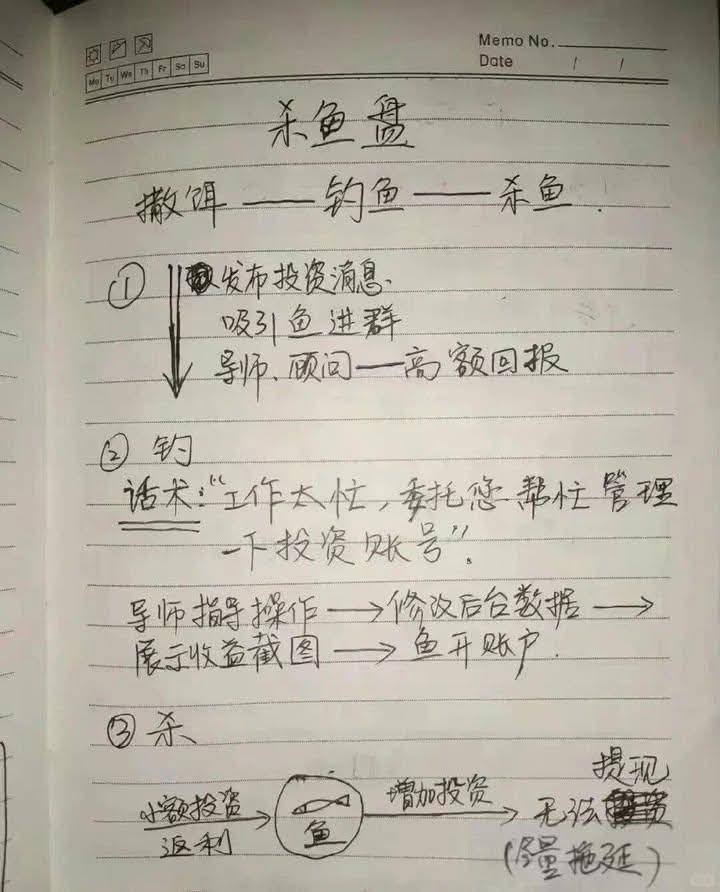 Memo No.
Date / /
Mo Tu We Th Fr Sa Su
杀鱼盘
撒饵——钓鱼——杀鱼.
① 发布投资消息.
吸引鱼进群
导师、顾问——高额回报
② 钓
话术:“工作太忙,委托您帮忙管理
一下投资账号”。
导师指导操作→修改后台数据→
展示收益截图→鱼开账户.
③ 杀
小额投资
返利
鱼
增加投资
提现
无法
(尽量拖延)